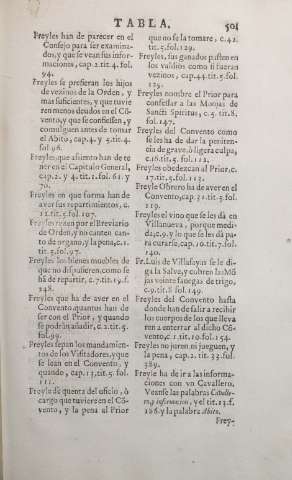 TABLA. 501
Freyles han de parecer en el
Consejo para ser examina-
dos, y que se vean sus infor-
maciones, cap. 2. tit. 4. fol.
94.
Freyles se prefieran los hijos
de vezinos de la Orden, y
mas suficientes, y que tuvie
ren menos deudos en el Cõ-
vento, y que se confiessen, y
comulguen antes de tomar
el Abito, cap. 4. y 5. tit. 4.
fol. 96.
Freyles, que assiento han de te
ner en el Capitulo General,
cap. 2. y 4. tit. 1. fol. 61. y
70.
Freyles en que forma han de
aver sus repartimientos, c.
12. tit. 5. fol. 107.
Freyles rezen por el Breviario
de Orden, y ni canten can-
to de organo, y la pena, c. 1.
tit. 5. fol. 97.
Freyles los bienes muebles de
que no dispusieren, como se
hã de repartir, c. 7. tit. 19. f.
248.
Freyles que ha de aver en el
Convento, quantos han de
ser con el Prior, y quando
se podrán añadir, c. 2. tit. 5.
fol. 99.
Freyles sepan los mandamien-
tos de los Visitadores, y que
se lean en el Convento, y
quando, cap. 13. tit. 5. fol.
111.
Freyle dè quenta del oficio, ò
cargo que tuviere en el Cõ-
vento, y la pena al Prior
que no se la tomare, c. 42.
tit. 5. fol. 129.
Freyles, sus ganados pasten en
los valdios como si fueran
vezinos, cap. 44. tit. 5. fol.
129.
Freyles nombre el Prior para
confessar a las Monjas de
Sancti Spiritus, c. 5. tit. 8.
fol. 147.
Freyles del Convento como
se les ha de dar la peniten-
cia de grave, ò ligera culpa,
c. 16. tit. 5. fol. 112.
Freyles obedezcan al Prior, c.
17. tit. 5. fol. 113.
Freyle Obrero ha de aver en el
Convento, cap. 31. tit. 5. fol.
119.
Freyles el vino que se les dà en
Villanueva, porque medi-
da, c. 9. y lo que se les dà pa-
ra curarse, cap. 10. tit. 7. fol.
140.
Fr. Luis de Villafayos se le di-
ga la Salve, y cobren las Mõ
jas veinte fanegas de trigo,
c. 9. tit. 8. fol. 149.
Freyles del Convento hasta
donde han de salir a recibir
los cuerpos de los que lleva
ren a enterrar al dicho Cõ-
vento, c. 1. tit. 10. fol. 154.
Freyles no juren ni jueguen, y
la pena, cap. 2. tit. 33. fol.
389.
Freyle ha de ir a las informa-
ciones con vn Cavallero.
Veanse las palabras Cavalle-
ro, y informacion, y el tit. 13. f.
186. y la palabra Abito.
Frey-